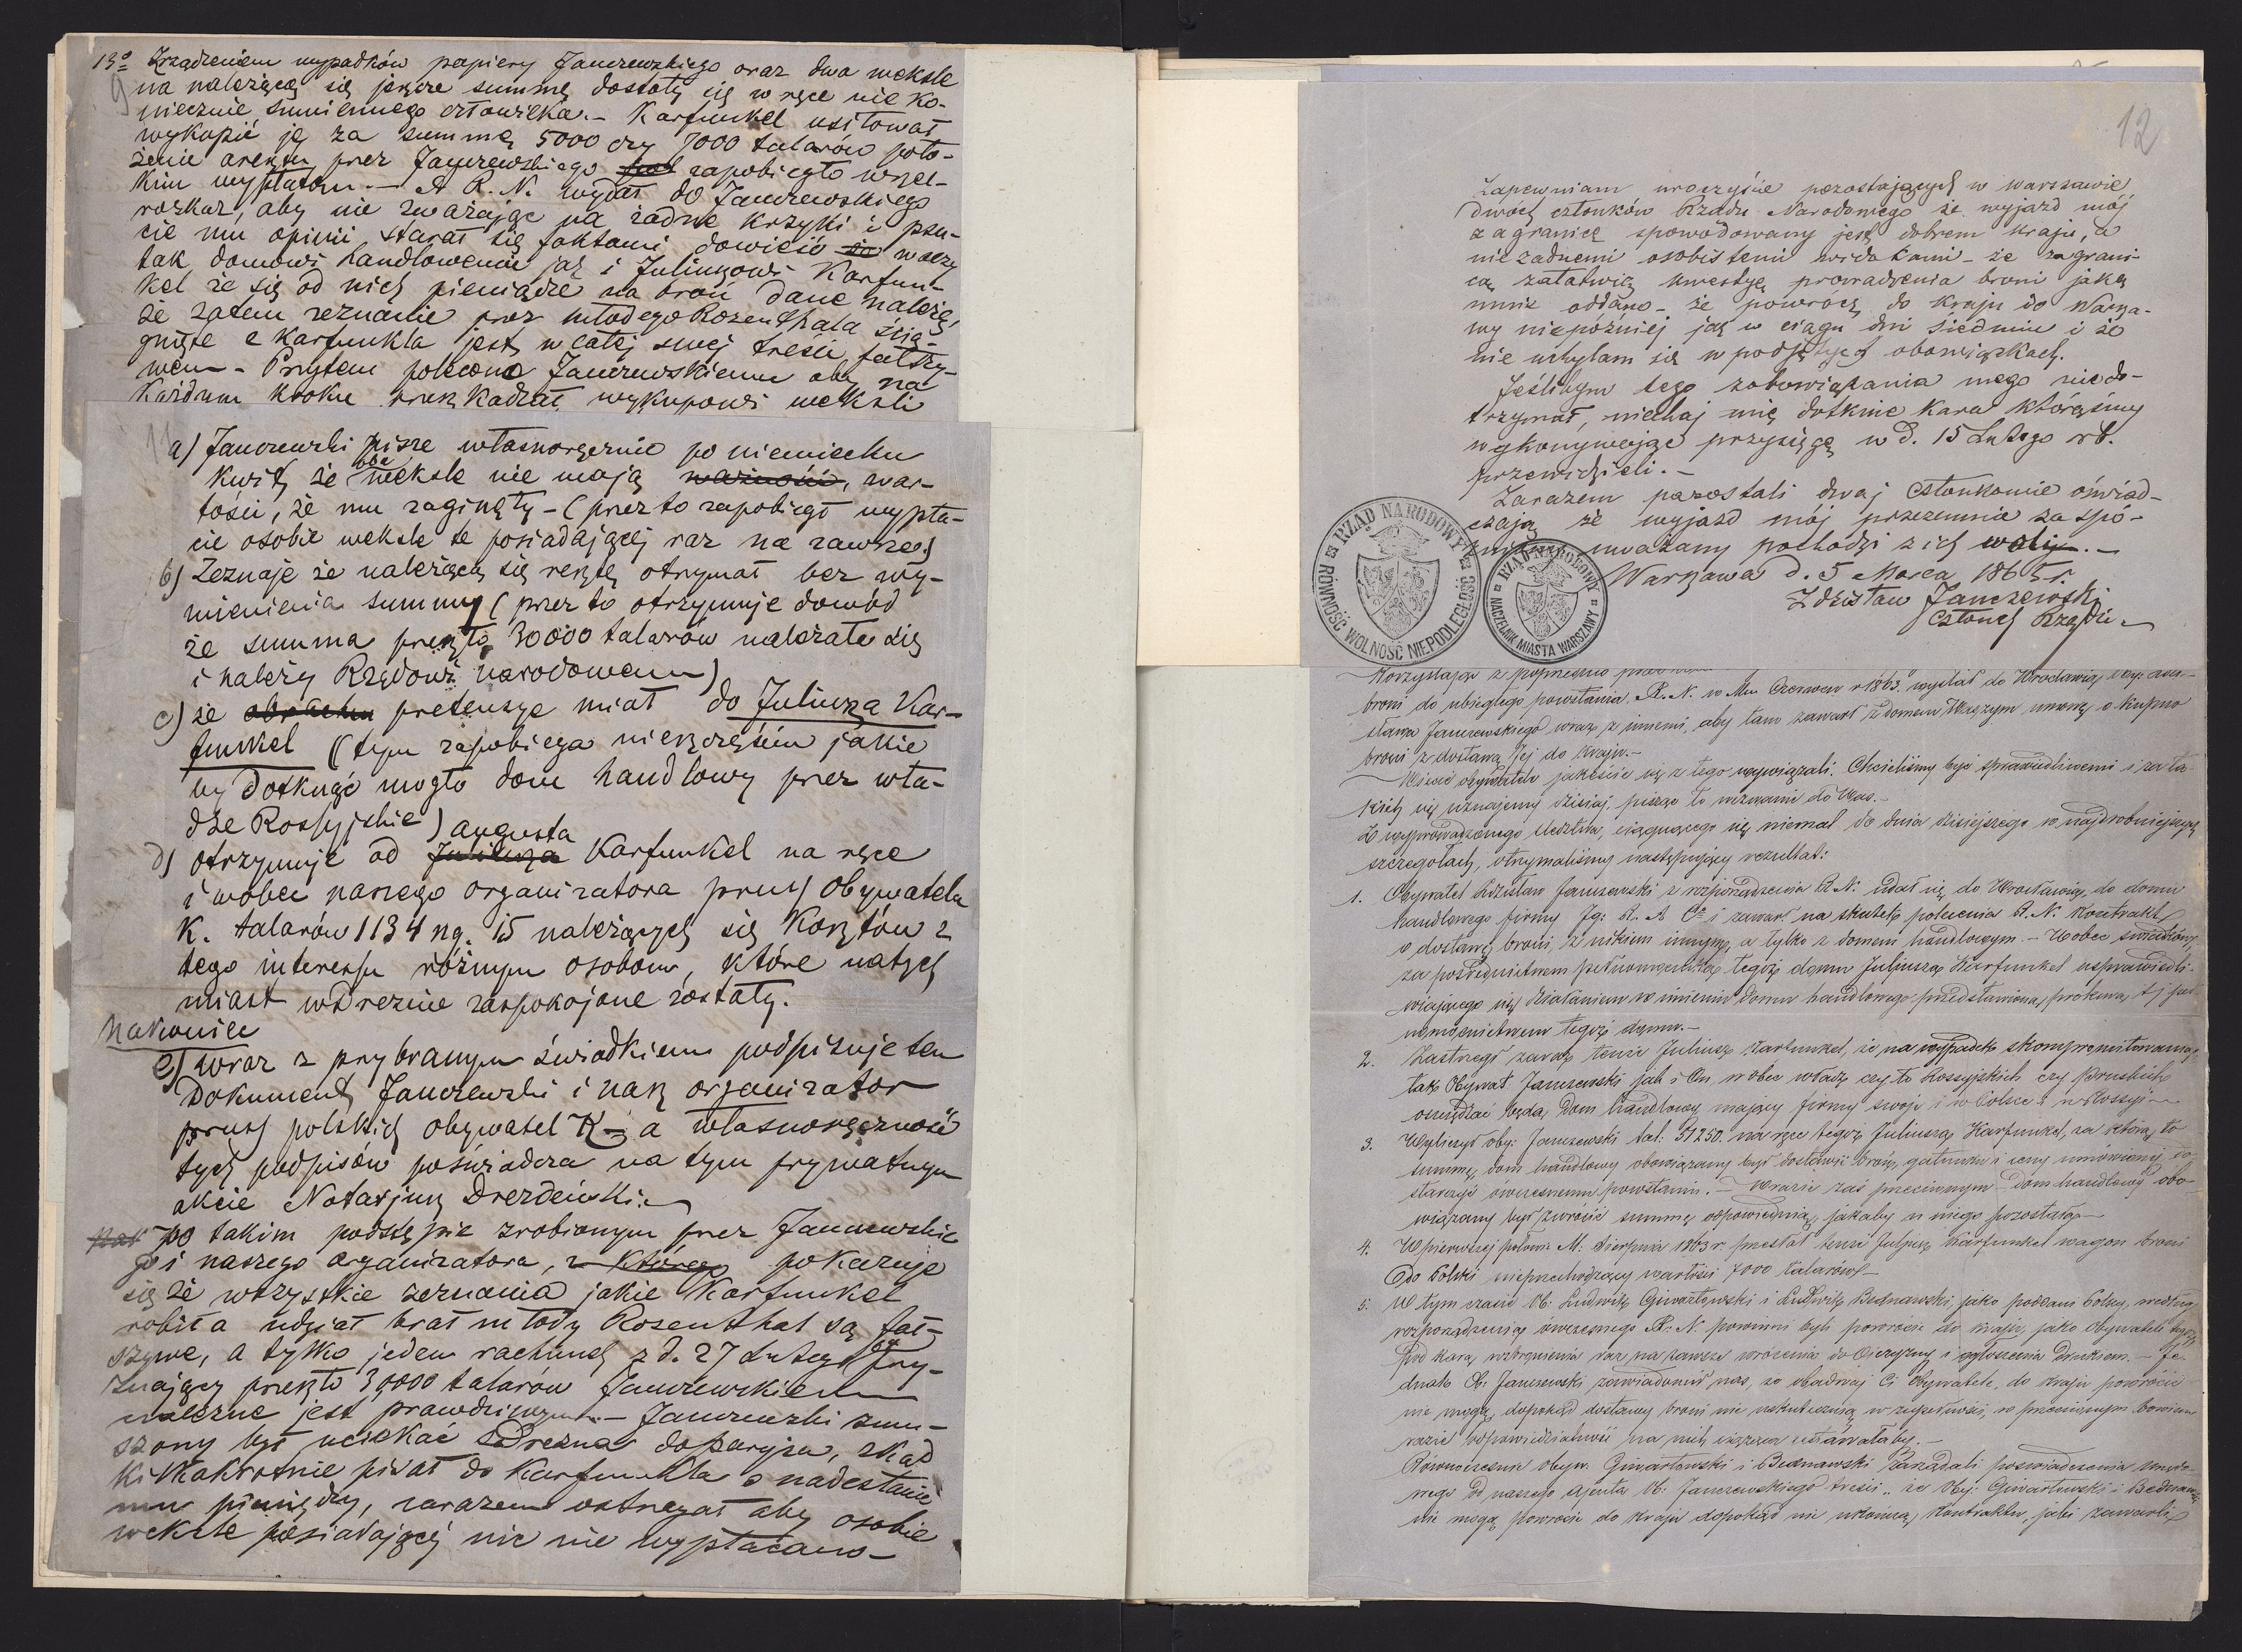 13º Zrządzeniem wypadków papiery Janczewskiego oraz dwa weksle
9 na należącą się jeszcze summę dostały się w ręce nie ko-
niecznie sumiennego człowieka.- Karfunkel usiłował
wykupić ją za summę 5000 czy 7000 talarów poło-
żenie aresztu przez Janczewskiego zapobiegło wszel-
kim wypłatom. - A R. N. wydał do Janczewskiego
rozkaz, aby nie zważając na żadne krzyki i psu-
cie mu opinii starał się faktami dowieść w oczy
tak domowi handlowemu jak i Juliuszowi Karfun-
kel że się od nich pieniądze na broń dane należą,
że zatem zeznanie przez młodego Rosenthala ścią-
gnięte z Karfunkla jest w całej swej treści fałszy-
wem - Przytem polecono Janczewskiemu aby na
każdym kroku przeszkadzał wykupowi weksli
11 a) Janczewski pisze własnoręcznie po niemiecku
kwit, że oba weksle nie mają ważności, war-
tości, że mu zaginęły - (przez to zapobiegł wypła-
cie osobie weksle te posiadającej raz na zawsze)
b) Zeznaje że należącą się resztę otrzymał bez wy-
mienienia summy (przez to otrzymuje dowód
że summa przeszło 30000 talarów należała się
i należy Rządowi narodowemu)
c) że pretensye miał do Juliusza Kar-
funkel (tym zapobiega nieszczęściu jakie
by dotknąć mogło dom handlowy przez wła-
dze Rossyjskie)
d) otrzymuje od Juliusza Augusta Karfunkel na ręce
i wobec naszego organizatora prus. Obywatela
K. talarów 1134 ng. 15 należących się kosztów z
tego interesu różnym osobom, które natych
miast w Dreznie zaspokojone zostały.
Nakoniec
e) wraz z przybranym świadkiem podpisuje ten
Dokument Janczewski i nasz organizator
prus. polskich obywatel K - a własnoręczność
tych podpisów poświadcza na tym prywatnym
akcie Notarjusz Drezdeński.
po takim podstępie zrobionym przez Janczewskie
go i naszego organizatora, z którego pokazuje
się że wszystkie zeznania jakie Karfunkel
robił a udział brał młody Rosenthal są fał-
szywe, a tylko jeden rachunek z d. 27 Lutego przy-
znający przeszło 30000 talarów Janczewskiemu
należne jest prawdziwym. - Janczewski zmu-
szony był uciekać z Drezna do Paryża, zkąd
kilkakrotnie pisał do Karfunkla o nadesłanie
mu pieniędzy, zarazem ostrzegał aby osobie
weksle posiadającej nic nie wypłacano -
12
Zapewniam uroczyście pozostających w Warszawie
dwóch członków Rządu Narodowego że wyjazd mój
zagranicę spowodowany jest dobrem kraju, a
nie żadnemi osobistemi widokami - że zagrani-
cą załatwię kwestyę prowadzenia broni jaką
mnie oddano - że powrócę do kraju do Warsza-
wy niepóźniej jak w ciągu dni siedmiu i że
nie uchylam się w podjętych obowiązkach.
Jeślibym tego zobowiązania mego niedo-
trzymał, niechaj mię dotknie kara którąśmy
wykonywając przysięgę w d. 15 Lutego rb.
przewidzieli. -
Zarazem pozostali dwaj Członkowie oświad-
czają że wyjazd mój przezemnie za spó-
uważany pochodzi z ich woli. -
Warszawa d. 5 Marca 1865 r.
Zdzisław Janczewski
Członek Rządu
RZĄD NARODOWY
RÓWNOŚĆ WOLNOŚĆ NIEPODLEGŁOŚĆ
RZĄD NARODOWY
NACZELNIK MIASTA WARSZAWY
Korzystając z poprzednio
broni do ubiegłego powstania, R. N. w Mcu Czerwcu r 1863. wysłał do Wrocławia oby:
sława Janczewskiego wraz z innemi, aby tam zawarł z domem Waszym umowę o kupno
broni z dostawą jej do kraju. -
Wiecie obywatele jakeście się z tego wywiązali. Chcieliśmy być sprawiedliwemi i za ta-
kich się uznajemy dzisiaj pisząc to wezwanie do Was. -
Z wyprowadzonego śledztwa, ciągnącego się niemal do dnia dzisiejszego w najdrobniejszych
szczegółach, otrzymaliśmy następujący rezultat:
1. Obywatel Zdzisław Janczewski z rozporządzenia R. N. udał się do Wrocławia, do domu
handlowego firmy Jg: R. A Cº i zawarł na skutek polecenia R. N. kontrakt
o dostawę broni, z nikim innym, a tylko z domem handlowym. - Wobec świadków,
za pośrednictwem pełnomocnika tegoż domu Juliusza Karfunkel usprawiedli-
wiającego się działaniem w imieniu domu handlowego przedstawioną prokurą, t j peł
nomocnictwem tegoż domu. -
2. Zastrzegł zaraz tenże Juliusz Karfunkel, że na wypadek skompromitowania,
tak Obywat. Janczewski jak i On, wobec władz czy to Rossyjskich czy Pruskich
oszczędzać będą Dom handlowy, mający firmy swoje i w Polsce i w Rossyi -
3. Wyliczył oby: Janczewski tal: 51250. na ręce tegoż Juliusza Karfunkel, za którą to
summę, dom handlowy obowiązany był dostawić broń, gatunku i ceny umówionej do-
starczyć ówczesnemu powstaniu. - W razie zaś przeciwnym - Dom handlowy obo-
wiązany był zwrócić summę odpowiednią, jakaby u niego pozostała -
4. W pierwszej połowie M. Sierpnia 1863 r. przesłał tenże Juljusz Karfunkel wagon broni
do Polski nieprzechodzący wartości 7000 talarów -
5. W tym czasie Ob: Ludwik Giwartowski i Ludwik Bednawski, jako poddani Polscy, według
rozporządzenia ówczesnego R: N. powinni byli powrócić do kraju, jako Obywatele
pod karą wzbronienia raz na zawsze wrócenia do Ojczyzny i ogłoszenia Drukiem. - Je-
dnak Ob. Janczewski zawiadomił nas, że obadwaj Ci Obywatele, do kraju powrócić
nie mogą, dopokąd dostawy broni nie uskutecznią w zupełności, w przeciwnym bowiem
razie odpowiedzialność na nich ustawałaby. -
Równocześnie obyw. Giwartowski i Bednawski zażądali poświadczenia
wego do naszego Ajenta Ob: Janczewskiego treści „ że Oby: Giwartowski i Bednawski
nie mogą powrócić do kraju dopokąd nie ukończą kontraktu, jaki zawarli